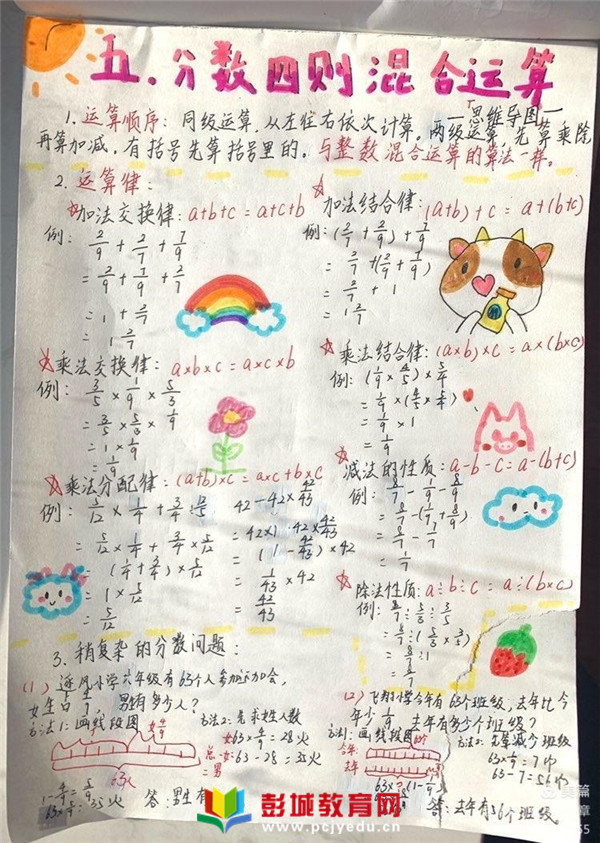 五.分数四则混合运算
一思维导图一
1.运算顺序:同级运算,从左往右依次计算。两级运算,先算乘除,
再算加减,有括号先算括号里的。与整数混合运算的算法一样。
2.运算律:
☆加法交换律:a+b+c=a+c+b
例:2/9+2/7+7/9
=2/9+7/9+2/7
=1+2/7
=1 2/7
☆加法结合律:(a+b)+c=a+(b+c)
例:(2/7+2/9)+7/9
=2/7+(2/9+7/9)
=2/7+1
=1 2/7
☆乘法交换律:a×b×c=a×c×b
例:3/5×1/9×5/3
=3/5×5/3×1/9
=1×1/9
=1/9
☆乘法结合律:(a×b)×c=a×(b×c)
例:(1/9×4/5)×5/4
=1/9×(4/5×5/4)
=1/9×1
=1/9
☆乘法分配律:(a+b)×c=a×c+b×c
例:5/12×1/4+3/4×5/12
=5/12×1/4+3/4×5/12
=(1/4+3/4)×5/12
=1×5/12
=5/12
42-42×42/43
=42×1-42×42/43
=(1-42/43)×42
=1/43×42
=42/43
减法的性质:a-b-c=a-(b+c)
例:8/7-1/9-8/9
=8/7-(1/9+8/9)
=8/7-7/7
=1/7
☆除法性质:a÷b÷c=a÷(b×c)
例:8/7÷5/3÷3/5
=8/7÷(5/3×3/5)
=8/7÷1
=8/7
3.稍复杂的分数问题:
(1)
小学六年级有63个人参加运动会,
女生占
男有多少人?
方法1:画线段图
方法2:先求女人数
女63×4/9=28
总-女=男
63-28=35
63
1-4/9=5/9
63×5/9=35
答:男生有
(2)飞翔小学今年有63个班级,去年比今
年少1/9,去年有多少个班级?
方法1:画线段图
今年
去年
方法2:先算减少班级
63×1/9=7
63-7=56
答:去年有56个班级
彭城教育网
www.pcjyedu.cn
美篇